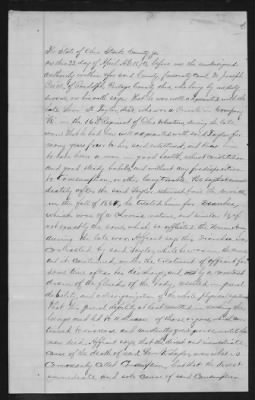 The State of Ohio Stark County, ss
On this 22 day of April A.D. 18 before me the undersigned
authority within for said County personally came Dr Joseph
Price of Randolph, Portage County Ohio who being by me duly
sworn on his oath says that he was well acquainted with the
late Henry D. Taylor, dec'd, who was a Private in Company
"B" in the 16th Regiment of Ohio Volunteers during the late
war. That he had been well acquainted with said Taylor for
many years prior to his said enlistment, and knew him
to have been a man in good health, robust constitution
and good steady habits, and without any predisposition
to Consumption, or other lung trouble. He says that imme-
diately after the said Taylor returned from the army
in the fall of 186 , he treated him for Diarrhea,
which was of a chronic nature, and similar
not exactly the same which so afflicted the
during the late war. Affiant says this Diarrhea was
contracted by said Taylor, while he was in the army
and it continued, under the treatment of Affiant for
some time after his discharge, and by a constant
drain of the fluids of the body, resulted in general
debility, and a disorganization of the whole physical system
That this general debility at last resulted in involving the
lungs and led to a disease of those organs, which con-
tinued to increase and constantly grow worse until the
man died. Affiant says that the direct and immediate
cause of the death of said Henry D. Taylor was what is
commonly called Consumption, but that the direct
immediate and sole cause of said Consumption